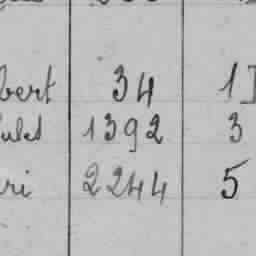 bert 34 1
ules 1392 3
ri 2244 5